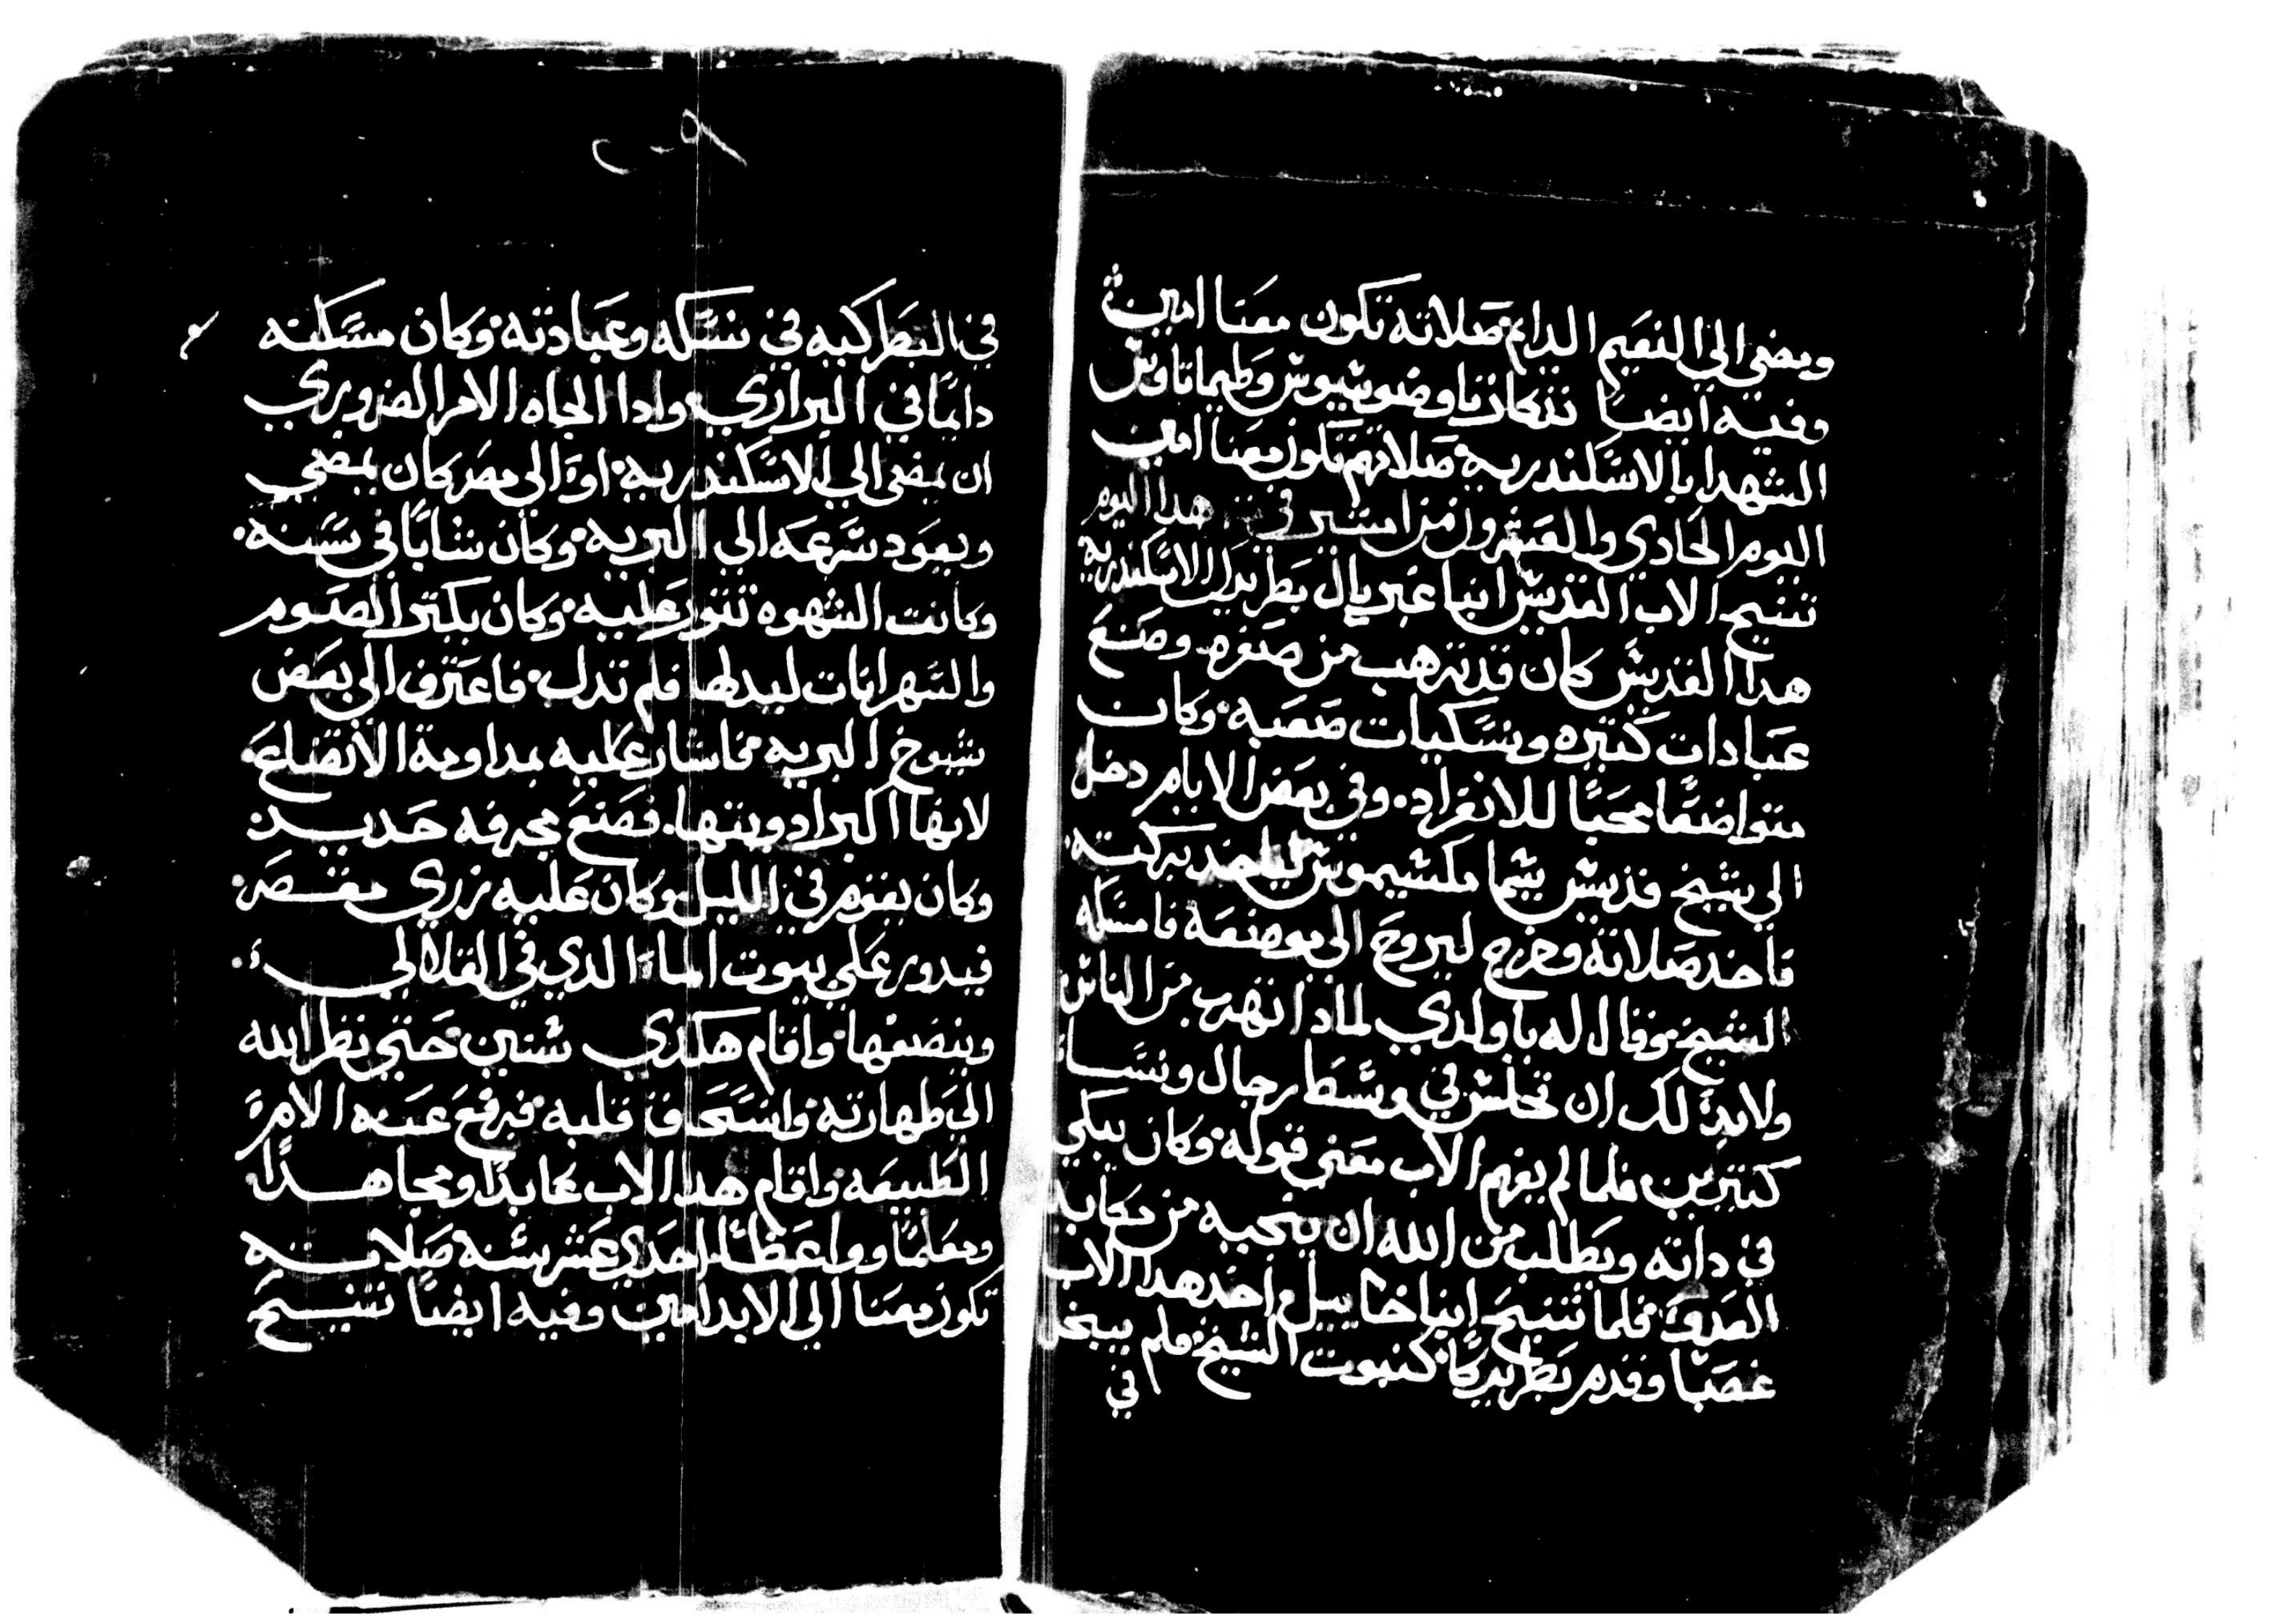 ويمضي الي النعيم الدايم صلاته تكون معنا امين
وفيه ايضا تذكار تاوضوسيوس وطيماتاوس
الشهدا بالاسكندرية صلاتهم تكون معنا امين
اليوم الحادي والعشرون من امشير في هدا اليوم
تنيح الاب القديس انبا غبريال بطريرك الاسكندرية
هدا القديس كان قد ترهب من صغره وصنع
عبادات كتيره ونسكيات صعبه وكان
متواضعًا محبًا للانفراد وفي بعض الايام دخل
الي شيخ قديس يسما مكسيموس لياخد بركته
فاخد صلاته وخرج ليروح الي موضعه فامسكه
الشيخ وقال له ياولدي لمادا تهرب من الناس
ولابد لك ان تجلس في وسط رجال ونسا
كتيرين فلما لم يفهم الاب معني قوله وكان يبكي
في داته ويطلب من الله ان ينجيه من
فلما تنيح انبا خاييل اخد هدا الاب
غصبًا وقدم بطريركًا كنبوت الشيخ فلم
في
في البطركيه في نسكه وعبادته وكان مسكنه
دايمًا في البراري وادا الجاه الامر الضروري
ان يمضي الي الاسكندريه او الي مصر كان يمضي
ويعود سرعه الي البريه وكان شابًا في سنه
وكانت الشهوه تتور عليه وكان يكتر الصوم
والسهرانات ليدلها فلم تدل فاعترف الي بعض
شيوخ البريه فاشار عليه بمداومة الاتضاع
لانها اكبر ادويتها فصنع مجرفه حديد
وكان يقوم في الليل وكان عليه زري مقصر
فيدور علي بيوت الما الدي في القلالي
وينضفها واقام هكدي سنتين حتي نظر الله
الي طهارته وانسحاق قلبه فرفع عنه الامر
الطبيعه واقام هدا الاب عابدًا ومجاهدًا
ومعلمًا وواعظًا احدي عشر سنة صلاته
تكون معنا الي الابد امين وفيه ايضًا تنيح